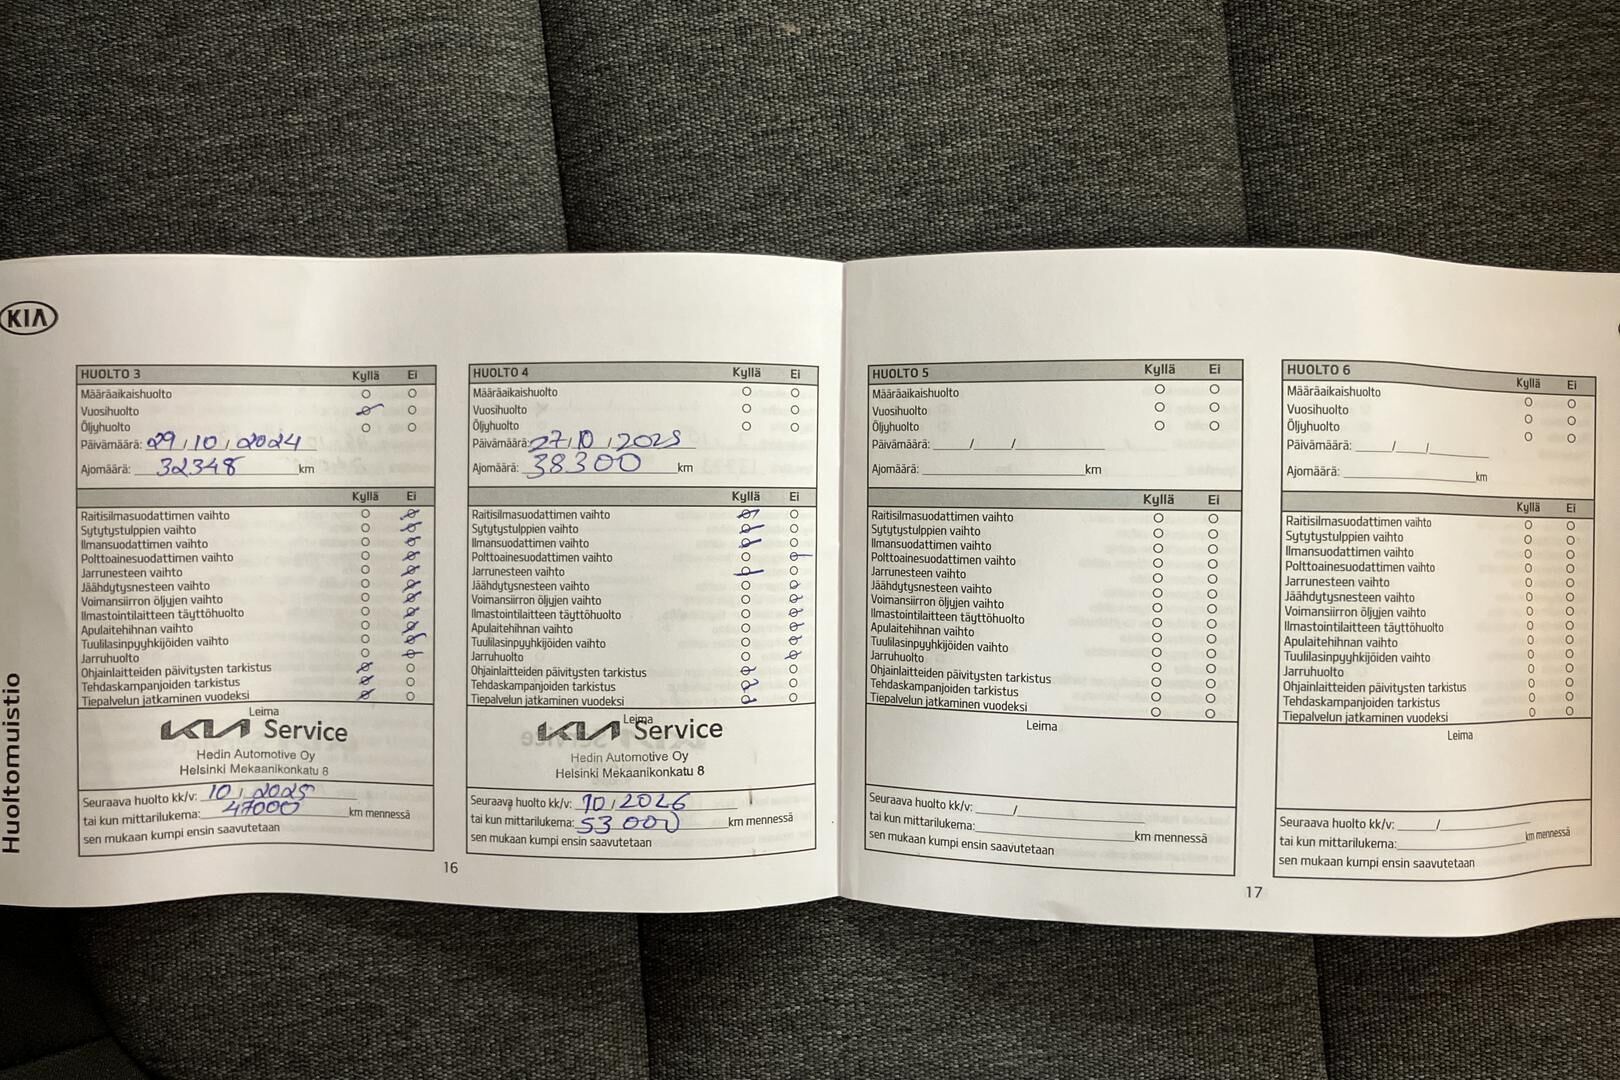 KIA
Huoltomuistio
HUOLTO 3 Kyllä Ei
Määräaikaishuolto
Vuosihuolto
Öljyhuolto
Päivämäärä: 29/10/2024
Ajomäärä: 32348 km
Kyllä Ei
Raitisilmasuodattimen vaihto
Sytytystulppien vaihto
Ilmansuodattimen vaihto
Polttoainesuodattimen vaihto
Jarrunesteen vaihto
Jäähdytysnesteen vaihto
Voimansiirron öljyjen vaihto
Ilmastointilaitteen täyttöhuolto
Apulaitehihnan vaihto
Tuulilasinpyyhkijöiden vaihto
Jarruhuolto
Ohjainlaitteiden päivitysten tarkistus
Tehdaskampanjoiden tarkistus
Tiepalvelun jatkaminen vuodeksi
Leima
KIA Service
Hedin Automotive Oy
Helsinki Mekaanikonkatu 8
Seuraava huolto kk/v: 10/2025
tai kun mittarilukema: 47000 km mennessä
sen mukaan kumpi ensin saavutetaan
HUOLTO 4 Kyllä Ei
Määräaikaishuolto
Vuosihuolto
Öljyhuolto
Päivämäärä: 27/10/2025
Ajomäärä: 38300 km
Kyllä Ei
Raitisilmasuodattimen vaihto
Sytytystulppien vaihto
Ilmansuodattimen vaihto
Polttoainesuodattimen vaihto
Jarrunesteen vaihto
Jäähdytysnesteen vaihto
Voimansiirron öljyjen vaihto
Ilmastointilaitteen täyttöhuolto
Apulaitehihnan vaihto
Tuulilasinpyyhkijöiden vaihto
Jarruhuolto
Ohjainlaitteiden päivitysten tarkistus
Tehdaskampanjoiden tarkistus
Tiepalvelun jatkaminen vuodeksi
Leima
KIA Service
Hedin Automotive Oy
Helsinki Mekaanikonkatu 8
Seuraava huolto kk/v: 10/2026
tai kun mittarilukema: 53 000 km mennessä
sen mukaan kumpi ensin saavutetaan
16
HUOLTO 5 Kyllä Ei
Määräaikaishuolto
Vuosihuolto
Öljyhuolto
Päivämäärä: / /
Ajomäärä: km
Kyllä Ei
Raitisilmasuodattimen vaihto
Sytytystulppien vaihto
Ilmansuodattimen vaihto
Polttoainesuodattimen vaihto
Jarrunesteen vaihto
Jäähdytysnesteen vaihto
Voimansiirron öljyjen vaihto
Ilmastointilaitteen täyttöhuolto
Apulaitehihnan vaihto
Tuulilasinpyyhkijöiden vaihto
Jarruhuolto
Ohjainlaitteiden päivitysten tarkistus
Tehdaskampanjoiden tarkistus
Tiepalvelun jatkaminen vuodeksi
Leima
Seuraava huolto kk/v: /
tai kun mittarilukema: km mennessä
sen mukaan kumpi ensin saavutetaan
HUOLTO 6 Kyllä Ei
Määräaikaishuolto
Vuosihuolto
Öljyhuolto
Päivämäärä: / /
Ajomäärä: km
Kyllä Ei
Raitisilmasuodattimen vaihto
Sytytystulppien vaihto
Ilmansuodattimen vaihto
Polttoainesuodattimen vaihto
Jarrunesteen vaihto
Jäähdytysnesteen vaihto
Voimansiirron öljyjen vaihto
Ilmastointilaitteen täyttöhuolto
Apulaitehihnan vaihto
Tuulilasinpyyhkijöiden vaihto
Jarruhuolto
Ohjainlaitteiden päivitysten tarkistus
Tehdaskampanjoiden tarkistus
Tiepalvelun jatkaminen vuodeksi
Leima
Seuraava huolto kk/v: /
tai kun mittarilukema: km mennessä
sen mukaan kumpi ensin saavutetaan
17